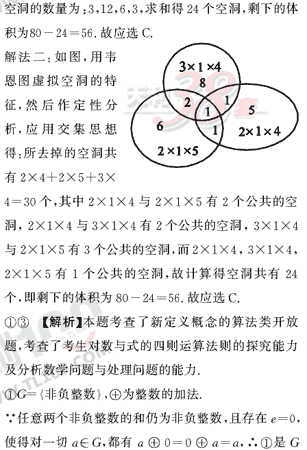 空洞的数量为:3,12,6,3,求和得24个空洞,剩下的体
积为80-24=56.故应选C.
解法二:如图,用韦
恩图虚拟空洞的特
征,然后作定性分
析,应用交集思想
得:所去掉的空洞共
有2×4+2×5+3×
3×1×4
8
2
1
1
1
5
2×1×4
6
2×1×5
4=30个,其中2×1×4与2×1×5有2个公共的空
洞,2×1×4与3×1×4有2个公共的空洞,3×1×4
与2×1×5有3个公共的空洞,而2×1×4,3×1×4,
2×1×5有1个公共的空洞,故计算得空洞共有24
个,即剩下的体积为80-24=56.故应选C.
①③ 【解析】本题考查了新定义概念的算法类开放
题,考查了考生对数与式的四则运算法则的探究能力
及分析数学问题与处理问题的能力.
①G={非负整数},⊕为整数的加法.
∵任意两个非负整数的和仍为非负整数,且存在e=0,
使得对一切a∈G,都有a⊕0=0⊕a=a,∴①是G